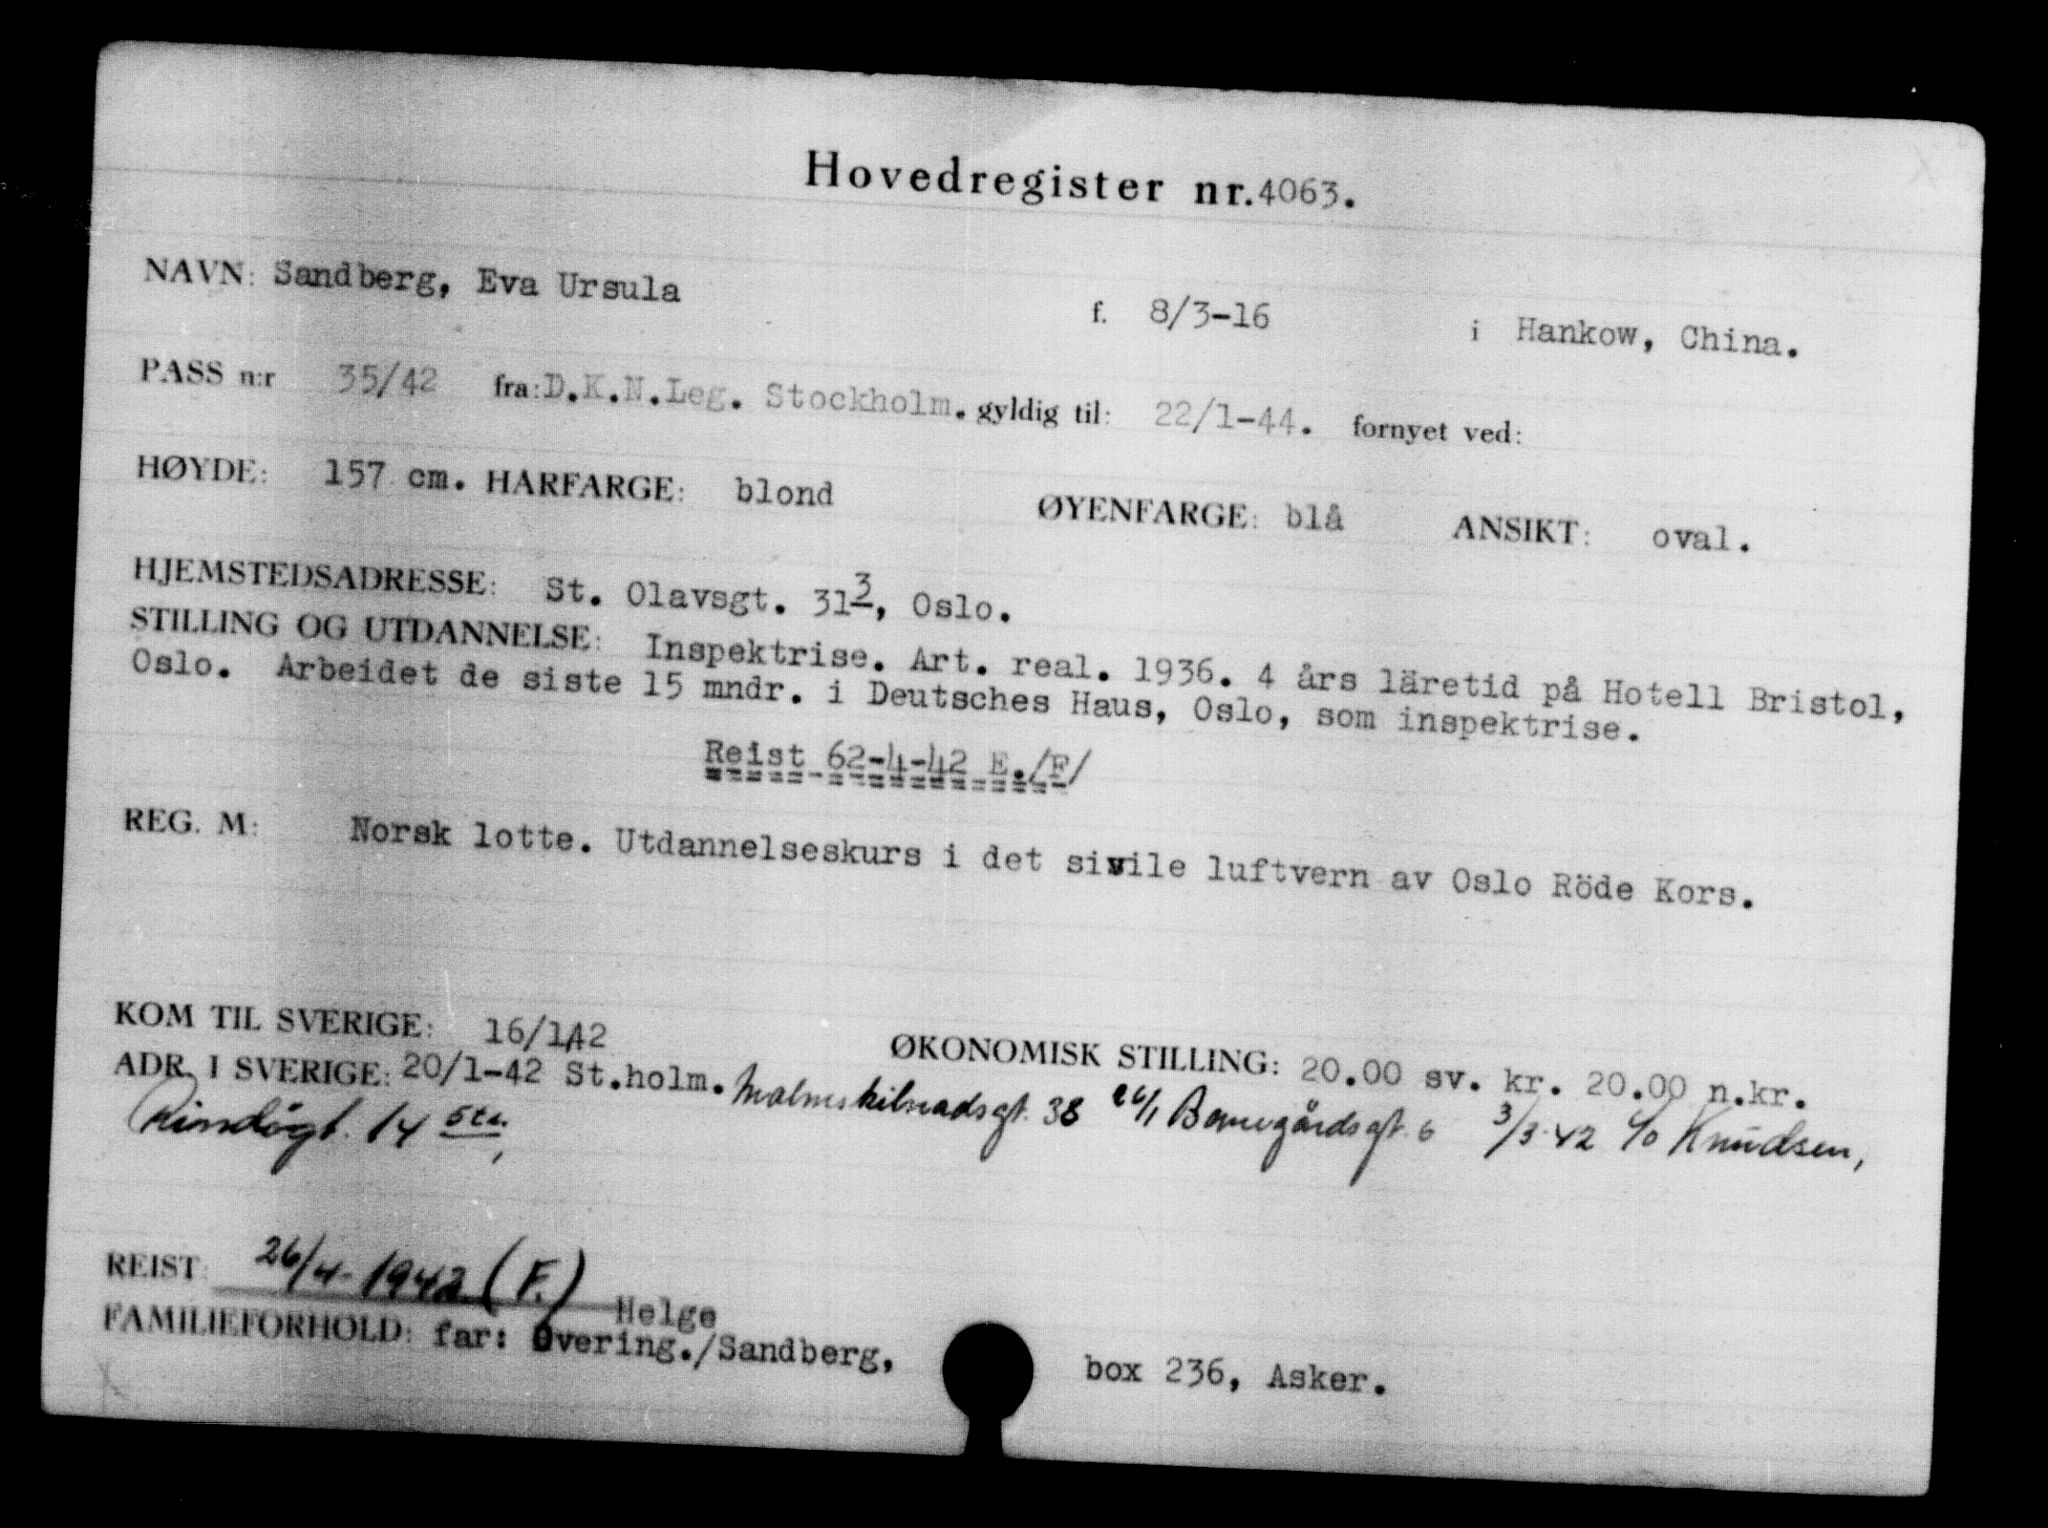 Hovedregister nr.4063.
NAVN: Sandberg, Eva Ursula f. 8/3-16 i Hankow, China.
PASS n:r 35/42 fra: D.K.N.Leg. Stockholm. gyldig til: 22/1-44. fornyet ved:
HØYDE: 157 cm. HARFARGE: blond ØYENFARGE: blå ANSIKT: oval.
HJEMSTEDSADRESSE: St. Olavsgt. 31³, Oslo.
STILLING OG UTDANNELSE: Inspektrise. Art. real. 1936. 4 års läretid på Hotell Bristol,
Oslo. Arbeidet de siste 15 mndr. i Deutsches Haus, Oslo, som inspektrise.
Reist 62-4-42 E./F/
REG. M: Norsk lotte. Utdannelseskurs i det sivile luftvern av Oslo Röde Kors.
KOM TIL SVERIGE: 16/1 42 ØKONOMISK STILLING: 20.00 sv. kr. 20.00 n.kr.
ADR. I SVERIGE: 20/1-42 St.holm. Malmskilnadsgt. 38 26/1 gt. 6 3/3-42 c/o Knudsen,
Rindögt. 14 5tr.,
REIST: 26/4-1942 (F.)
Helge
FAMILIEFORHOLD: far: Overing./Sandberg, box 236, Asker.